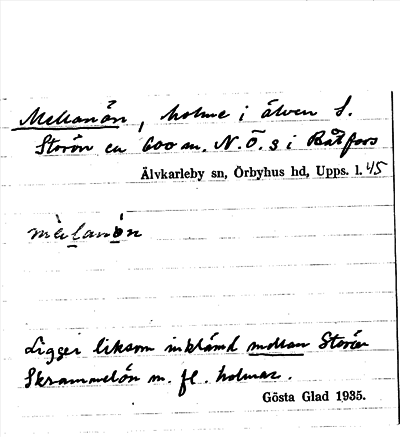 Mellanön, holme i älven S.
Storön ca 600 m. N.Ö. s i Båtfors
Älvkarleby sn, Örbyhus hd, Upps. l. 45
Ligger liksom inklämd mellan Storön
Skrammelön m. fl. holmar.
Gösta Glad 1935.